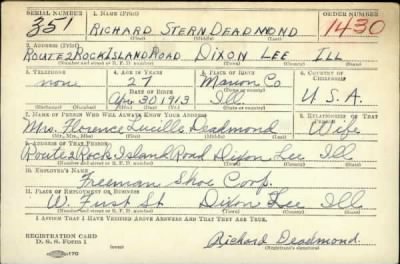 SERIAL NUMBER 1. NAME (Print) ORDER NUMBER
351 RICHARD STERN DEADMOND 1430
(First) (Middle) (Last)
2. ADDRESS (Print)
ROUTE 2 ROCK ISLAND ROAD DIXON LEE ILL
(Number and street or R. F. D. number) (Town) (County) (State)
3. TELEPHONE 4. AGE IN YEARS 5. PLACE OF BIRTH 6. COUNTRY OF CITIZENSHIP
none 27 Marion Co
DATE OF BIRTH (Town or county)
Apr 30 1913 Ill. U.S.A.
(Exchange) (No.) (Mo.) (Day) (Yr.) (State or country)
7. NAME OF PERSON WHO WILL ALWAYS KNOW YOUR ADDRESS 8. RELATIONSHIP OF THAT PERSON
Mrs. Florence Lucille Deadmond Wife
(Mr., Mrs., Miss) (First) (Middle) (Last)
9. ADDRESS OF THAT PERSON
Route 2 Rock Island Road Dixon Lee Ill
(Number and street or R. F. D. number) (Town) (County) (State)
10. EMPLOYER'S NAME
Freeman Shoe Corp.
11. PLACE OF EMPLOYMENT OR BUSINESS
W. First St Dixon Lee Ill
(Number and street or R. F. D. number) (Town) (County) (State)
I AFFIRM THAT I HAVE VERIFIED ABOVE ANSWERS AND THAT THEY ARE TRUE.
REGISTRATION CARD
D. S. S. Form 1 Richard Deadmond
(over) (Registrant's signature)